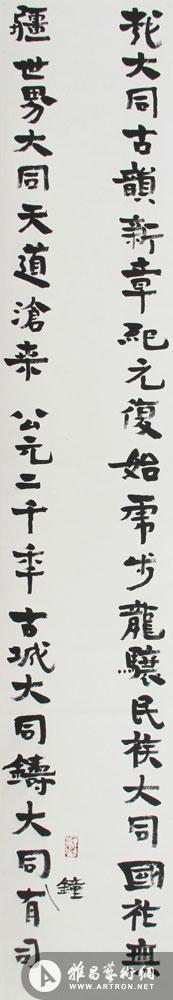 哉大同古韻新章紀元復始虎步龍驤民族大同國祚無
疆世界大同天道滄桑 公元二千年古城大同鑄大同有司
鐘
雅昌藝術網
WWW.ARTRON.NET